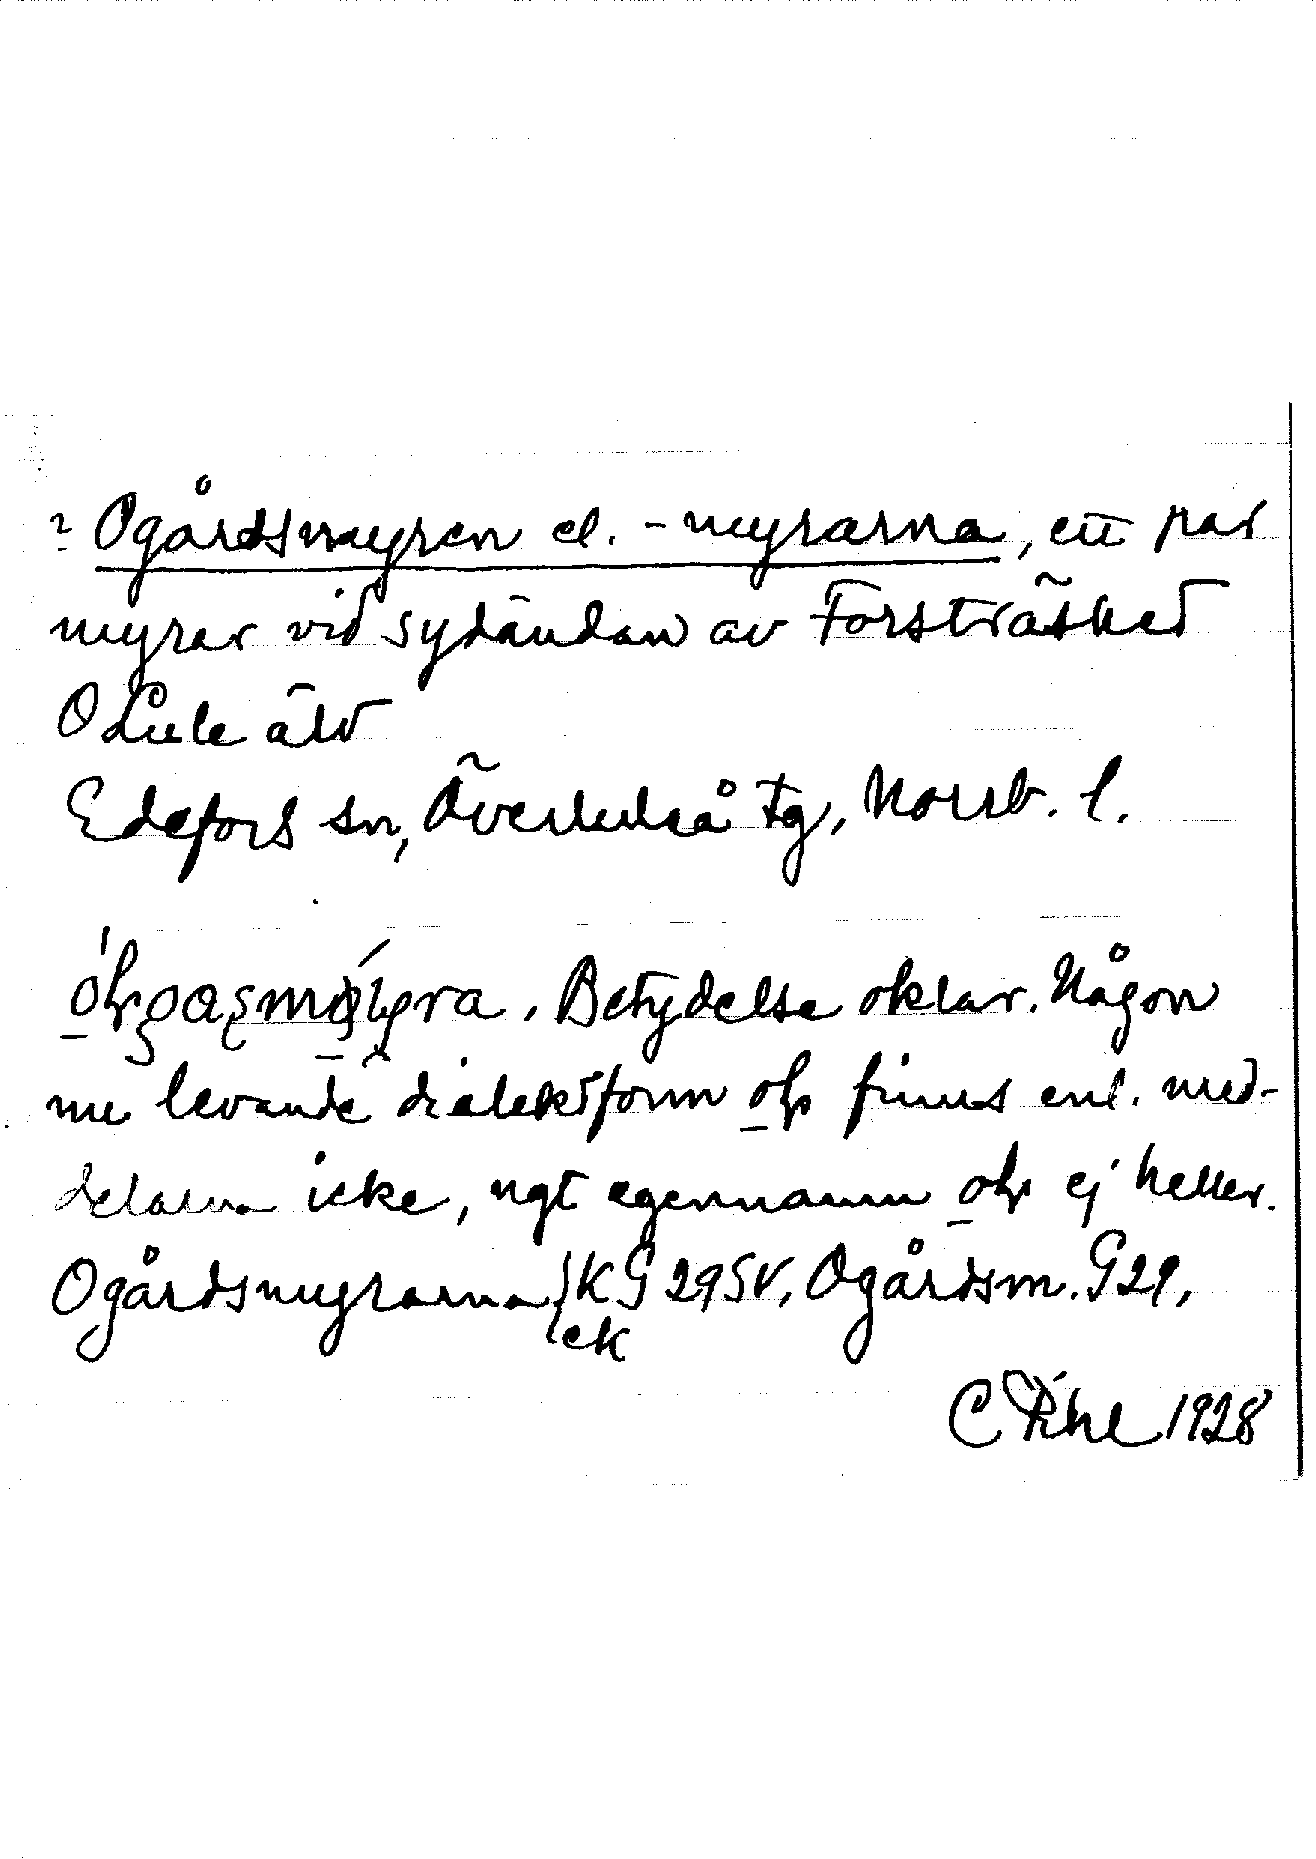 ? Ogårdsmyren el. -myrarna, ett par
myrar vid sydändan av Forsträsket
O Lule älv
Edefors sn, Överluleå tg, Norrb. l.
Betydelse oklar. Någon
nu levande dialektform finns enl. med-
delarna icke, ngt egennamn ej heller.
Ogårdsmyrarna {K G 29SV, Ogårdsm. G29,
ek
C Pihl 1928